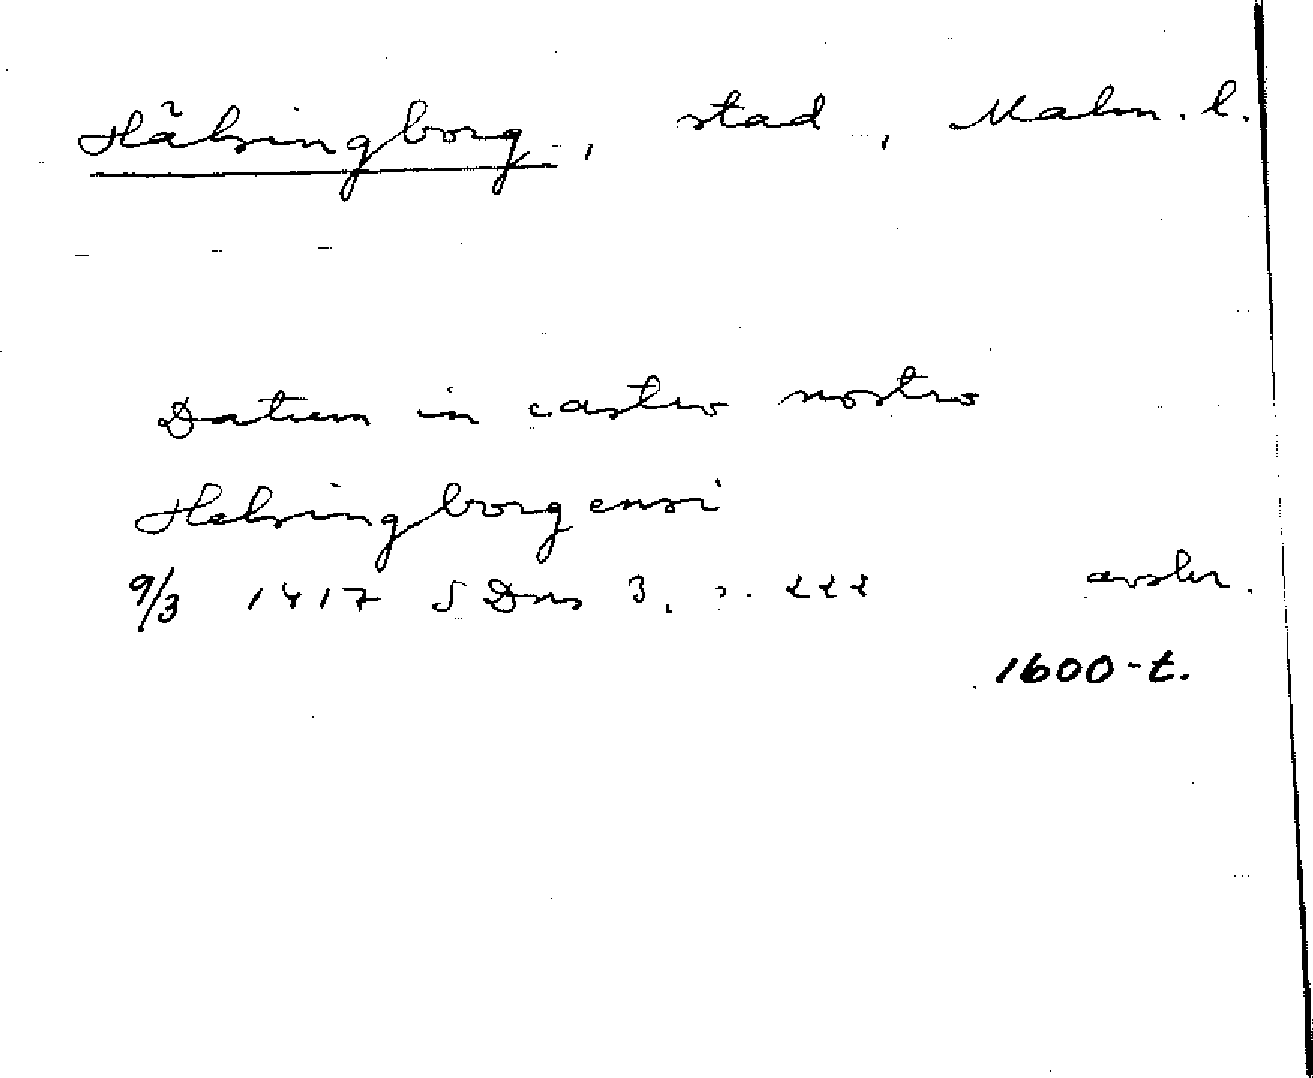 Hälsingborg, stad, Malm. l.
Datum in castro nostro
Helsingborgensi
9/3 1417 SDns 3, s. 222 avskr.
1600-t.